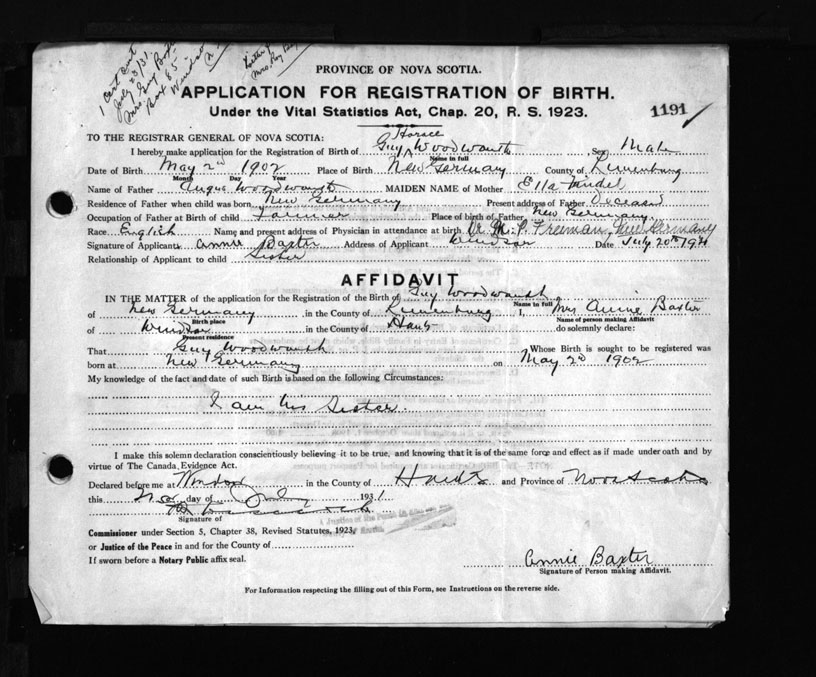 1 Cert sent
July 23/31.
Mrs. Guy
Box 85
Windsor
Sister of
Mrs.
PROVINCE OF NOVA SCOTIA.
APPLICATION FOR REGISTRATION OF BIRTH.
Under the Vital Statistics Act, Chap. 20, R. S. 1923.
1191
TO THE REGISTRAR GENERAL OF NOVA SCOTIA:
Horace
I hereby make application for the Registration of Birth of Guy Woodworth Sex Male
Name in full
Date of Birth May 2nd 1902 Place of Birth New Germany County of Lunenburg
Month Day Year
Name of Father Angus Woodworth MAIDEN NAME of Mother Ella
Residence of Father when child was born New Germany Present address of Father Deceased
Occupation of Father at Birth of child Farmer Place of birth of Father New Germany.
Race English Name and present address of Physician in attendance at birth Dr. M. P. Freeman, New Germany
Signature of Applicant Annie Baxter Address of Applicant Windsor Date July 20th 1931
Relationship of Applicant to child Sister
AFFIDAVIT
IN THE MATTER of the application for the Registration of the Birth of Guy Woodworth
Name in full
of New Germany in the County of Lunenburg I, Mrs Annie Baxter
Birth place Name of person making Affidavit
of Windsor in the County of Hants do solemnly declare:
Present residence
That Guy Woodworth Whose Birth is sought to be registered was
born at New Germany on May 2nd 1902
My knowledge of the fact and date of such Birth is based on the following Circumstances:
I am his Sister.
I make this solemn declaration conscientiously believing it to be true, and knowing that it is of the same force and effect as if made under oath and by
virtue of The Canada Evidence Act.
Declared before me at Windsor in the County of Hants and Province of Nova Scotia
this day of July 1931
Signature of
Commissioner under Section 5, Chapter 38, Revised Statutes, 1923,
or Justice of the Peace in and for the County of
If sworn before a Notary Public affix seal.
Annie Baxter
Signature of Person making Affidavit.
For Information respecting the filling out of this Form, see Instructions on the reverse side.